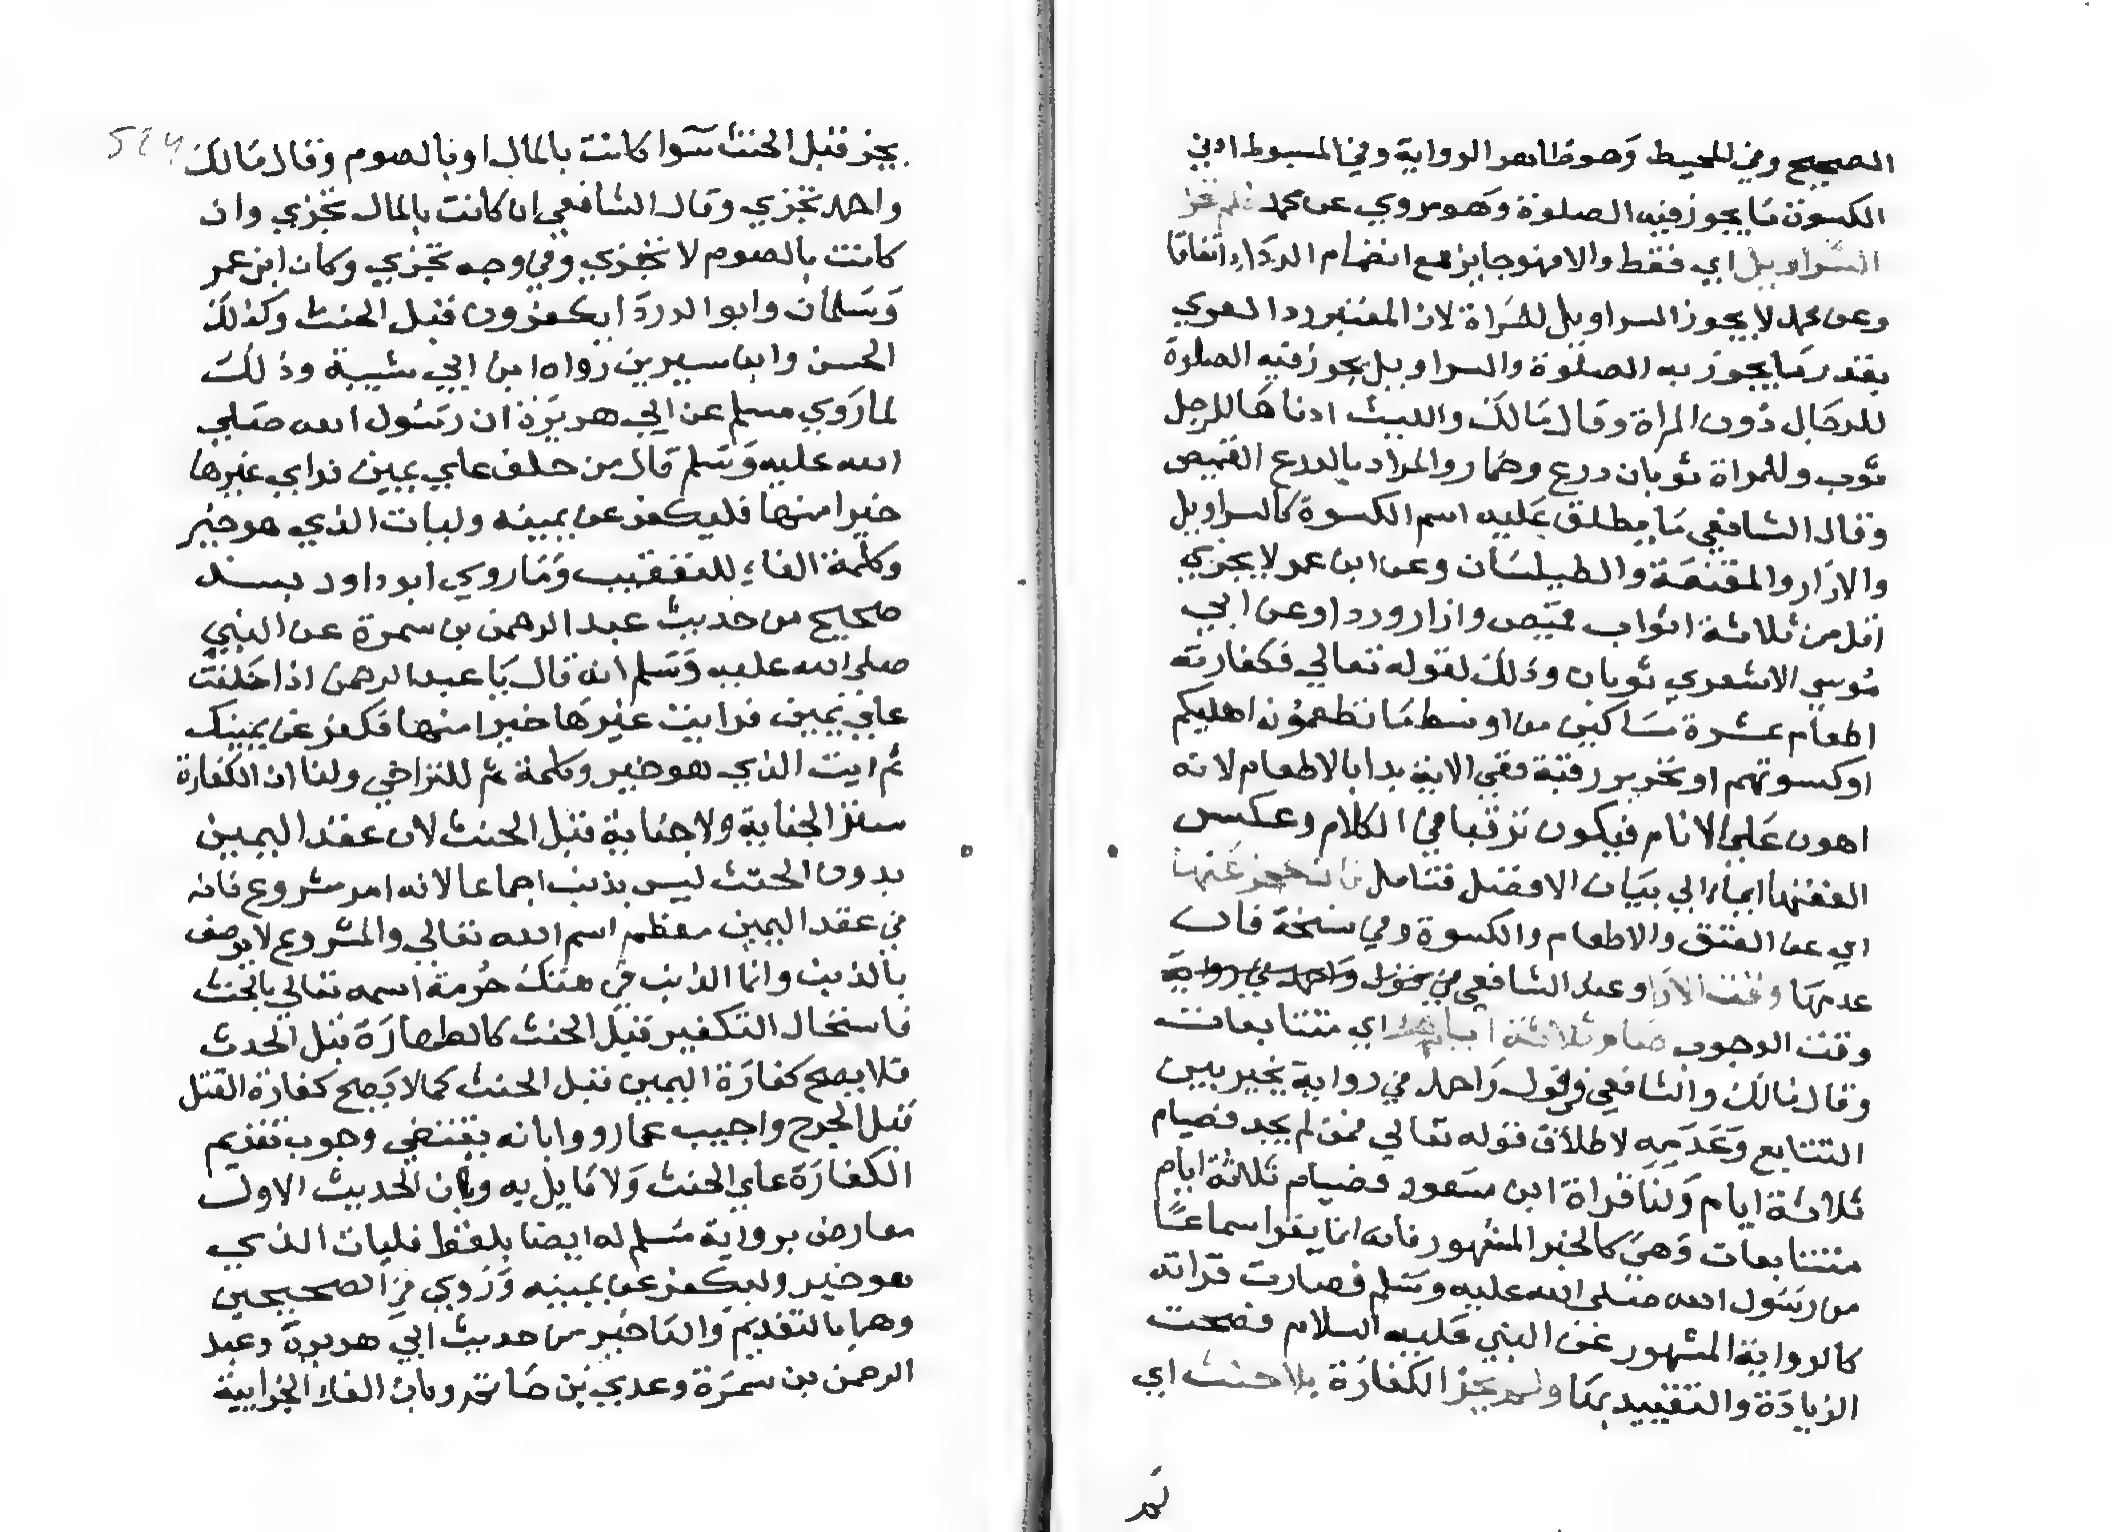 الصحيح وفي المحيط وهو ظاهر الرواية وفي المبسوط ادني
الكسوة ما يجوز فيه الصلوة وهو مروي عن محمد فلم تجز
السراويل اي فقط والا فهو جايز مع انضمام الرداء اتفاقا
وعن محمد لا يجوز السراويل للمراة لان المعتبر رد العري
بقدر ما يجوز به الصلوة والسراويل يجوز فيه الصلوة
للرجال دون المراة وقال مالك والليث ادناها للرجل
ثوب وللمراة ثوبان درع وخمار والمراد بالدرع القميص
وقال الشافعي ما يطلق عليه اسم الكسوة كالسراويل
والازار والمقنعة والطيلسان وعن ابن عمر لا يجزي
اقل من ثلاثة اثواب قميص وازار وردا وعن ابي
موسي الاشعري ثوبان وذلك لقوله تعالي فكفارته
اطعام عشرة مساكين من اوسط ما تطعمون اهليكم
او كسوتهم او تحرير رقبة ففي الاية بدا بالاطعام لانه
اهون علي الانام فيكون ترقيا في الكلام وعكس
الفقها ايماء الي بيان الافضل فتامل فان عجز عنها
اي عن العتق والاطعام والكسوة وفي نسخة فان
عدمها وقت الادا وعند الشافعي في قول واحمد في رواية
وقت الوجوب صام ثلاثة ايام اي متتابعات
وقال مالك والشافعي في قول واحمد في رواية يخير بين
التتابع وعدمه لاطلاق قوله تعالي فمن لم يجد فصيام
ثلاثة ايام ولنا قراة ابن مسعود فصيام ثلاثة ايام
متتابعات وهي كالخبر المشهور فانه انما يقرا سماعًا
من رسول الله صلى الله عليه وسلم فصارت قراته
كالرواية المشهور عن النبي عليه السلام فصحت
الزيادة والتقييد بها ولم يجز الكفارة بلا حنث اي
لم
524
يجز قبل الحنث سوا كانت بالمال او بالصوم وقال مالك
واحمد تجزي وقال الشافعي ان كانت بالمال تجزي وان
كانت بالصوم لا تجزي وفي وجه تجزي وكان ابن عمر
وسلمان وابو الدردا يكفرون قبل الحنث وكذلك
الحسن وابن سيرين رواه ابن ابي شيبة وذلك
لما روي مسلم عن ابي هريرة ان رسول الله صلي
الله عليه وسلم قال من حلف علي يمين فراي غيرها
خيرا منها فليكفر عن يمينه وليات الذي هو خير
وكلمة الفاء للتعقيب وما روي ابو داود بسند
صحيح من حديث عبد الرحمن بن سمرة عن النبي
صلى الله عليه وسلم انه قال يا عبد الرحمن اذا حلفت
علي يمين فرايت غيرها خيرا منها فكفر عن يمينك
ثم ايت الذي هو خير وكلمة ثم للتراخي ولنا ان الكفارة
ستر الجناية ولا جناية قبل الحنث لان عقد اليمين
بدون الحنث ليس بذنب اجماعا لانه امر مشروع فانه
في عقد اليمين معظم اسم الله تعالي والمشروع لا يوصف
بالذنب وانما الذنب في هتك حرمة اسمه تعالي بالحنث
فاستحال التكفير قبل الحنث كالطهارة قبل الحدث
فلا يصح كفارة اليمين قبل الحنث كما لا يصح كفارة القتل
قبل الجرح واجيب عما رووا بانه يقتضي وجوب تقديم
الكفارة علي الحنث ولا قايل به وبان الحديث الاول
معارض برواية مسلم له ايضا بلفظ فليات الذي
هو خير وليكفر عن يمينه وروي في الصحيحين
وهما بالتقديم والتاخير من حديث ابي هريرة وعبد
الرحمن بن سمرة وعدي بن حاتم وبان الفاء الجزايية